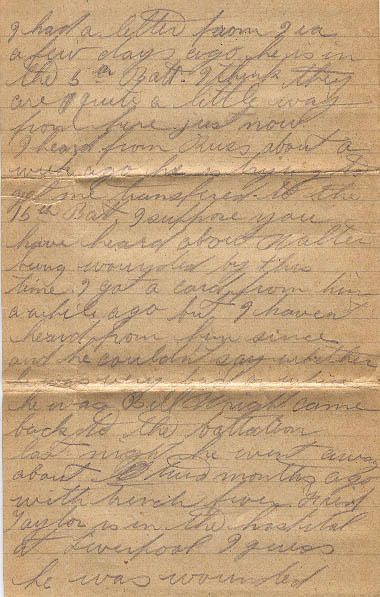 I had a letter from Ira
a few days ago he is in
the 5th Batt. I think they
are quite a little way
from here just now
I heard from Russ about a
week ago he is trying to
get me transfered to the
15th Bat, I suppose you
have heard about Walter
being wounded by this
time I got a card from him
a while ago but I haven't
heard from him since
and he couldn't say whether
he was very bad
he was Bill Wright came
back to the battalion
last night he went away
about three months ago
with trench fever Fred
Taylor is in the hospital
at Liverpool I guess
he was wounded